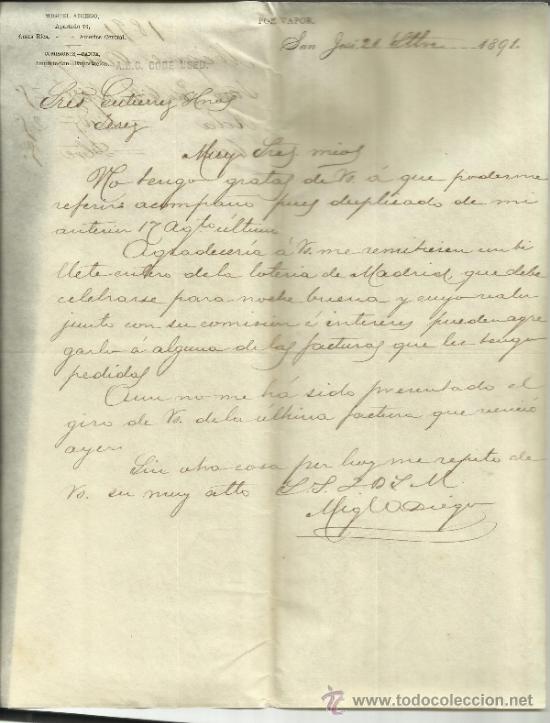 MIGUEL
Apartado
Costa Rica, America Central.
POR VAPOR.
A.B.C. CODE USED.
San José, 21 1891.
Sres Gutierrez Hnos
Jerez
Muy Sres. mios
No tengo gratas de Vs. á que poderme
referir acompaño pues duplicado de mi
anterior 17 Agto último
Agradeceria á Vs. me remitiesen un bi
llete entero de la loteria de Madrid, que debe
celebrarse para noche buena y cuyo valor
junto con su comision é interes pueden agre
garlo á alguna de las facturas que les tengo
pedidas
Aun no me há sido presentado el
giro de Vs. de la última factura que venció
ayer.
Sin otra cosa por hoy me repito de
Vs. su muy atto S. S. Q B S M.
Migl Diego
www.todocoleccion.net